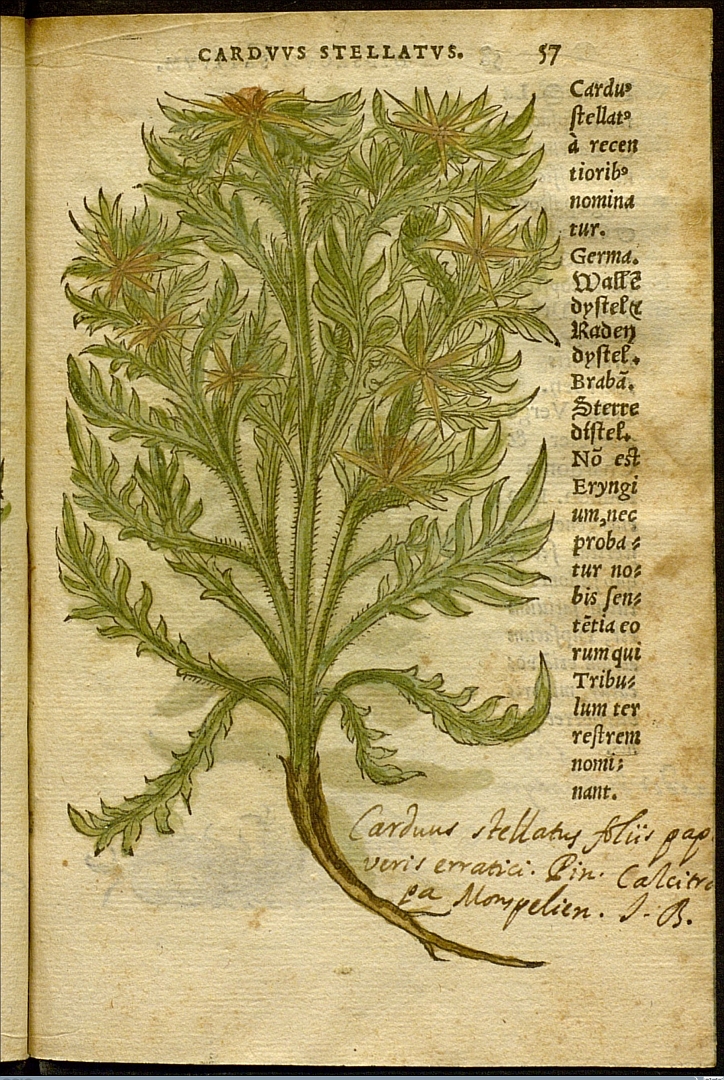 CARDVVS STELLATVS. 57
Carduꝰ
ſtellatꝰ
à recen
tioribꝰ
nomina
tur.
Germa.
Wallē
dyſtel &
Raden
dyſtel.
Brabā.
Sterre
diſtel.
Nõ eſt
Eryngi
um, nec
proba⸗
tur no⸗
bis ſen⸗
tẽtia eo
rum qui
Tribu⸗
lum ter
reſtrem
nomi⸗
nant.
Carduus stellatus foliis pap
veris erratici. Pin. Calcitra
pa Monspelien. J. B.